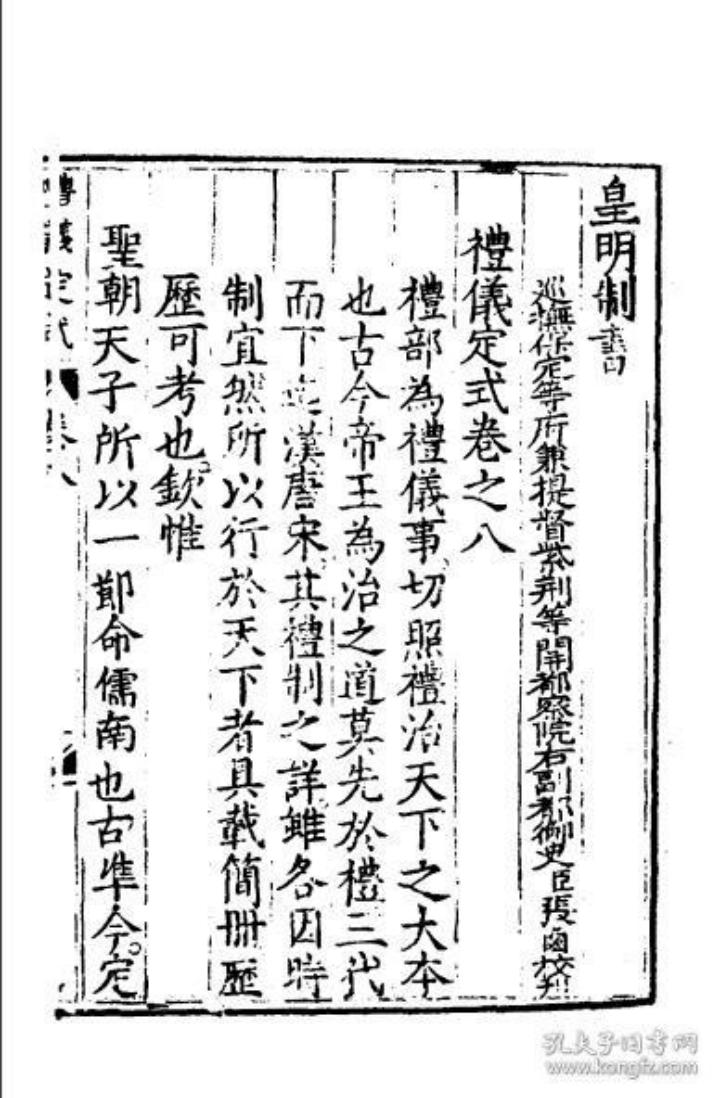 皇明制書
巡撫保定等府兼提督紫荆等関都察院右副都御史臣張鹵校刋
禮儀定式卷之八
禮部為禮儀事切照禮治天下之大本
也古今帝王為治之道莫先於禮三代
而下迄漢唐宋其禮制之詳雖各因時
制宜然所以行於天下者具載簡冊歷
歷可考也欽惟
聖朝天子所以一郢命儒南也古準今定
定式 卷八
孔夫子旧书网
www.kongfz.com